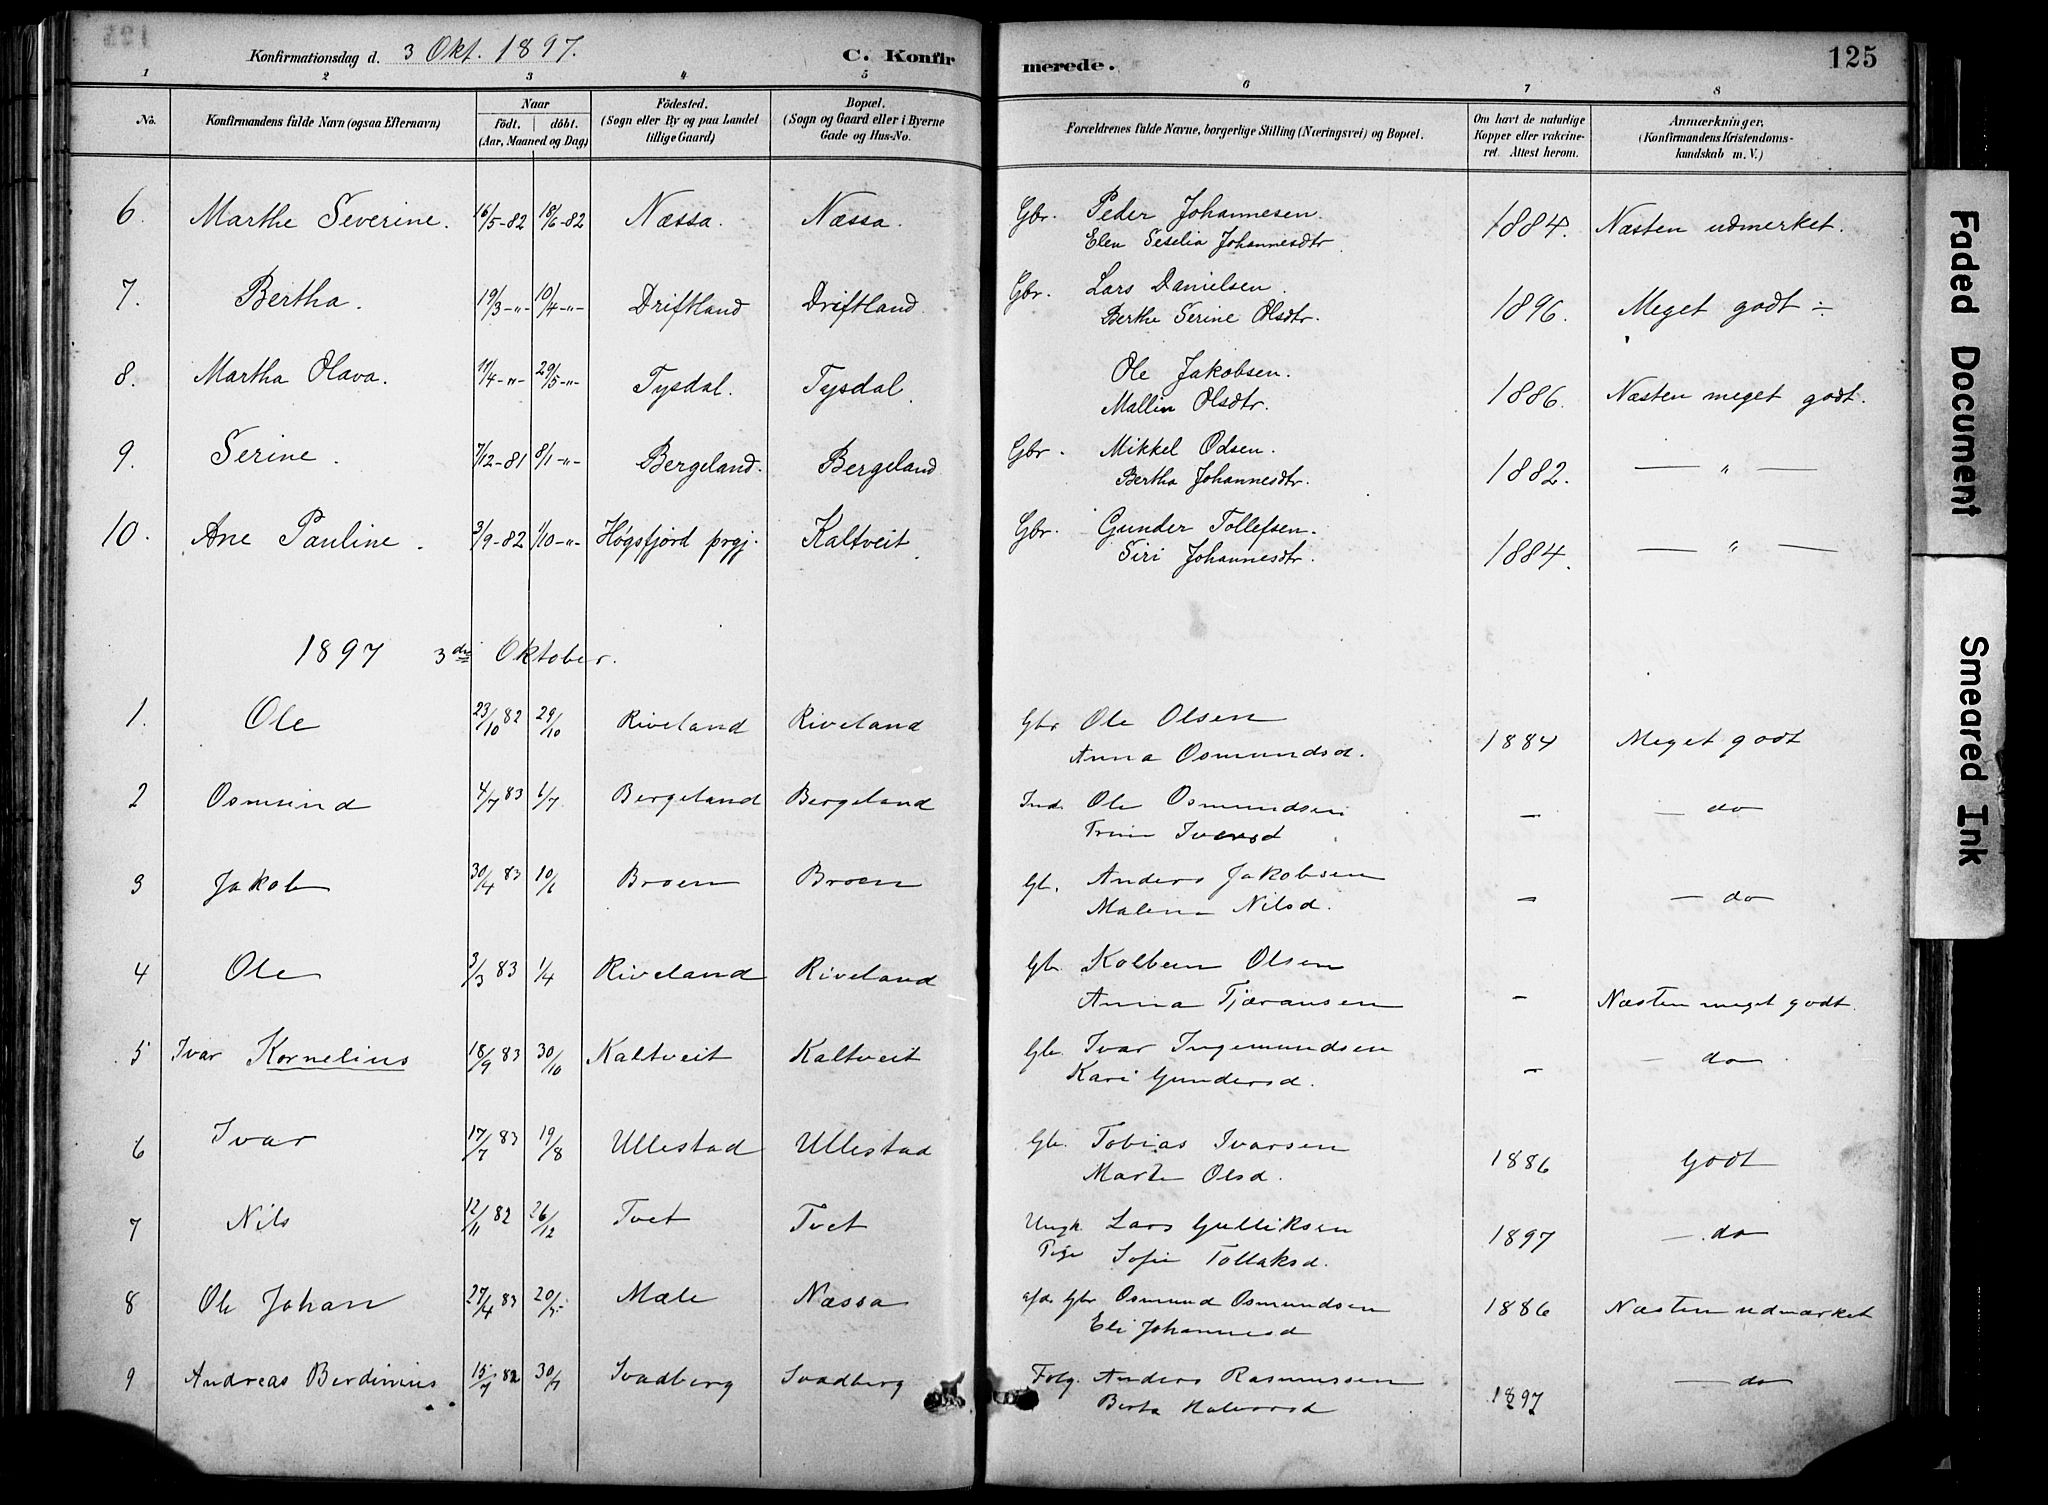 Konfirmationsdag d. 3 Okt. 1897.
C. Konfirmerede.
125
1 2 3 4 5 6 7 8
No.
Konfirmandens fulde Navn (ogsaa Efternavn)
Naar
født. døbt.
(Aar, Maaned og Dag)
Fødested.
(Sogn eller By og paa Landet
tillige Gaard)
Bopæl.
(Sogn og Gaard eller i Byerne
Gade og Hus-No.
Forældrenes fulde Navne, borgerlige Stilling (Næringsvei) og Bopæl.
Om havt de naturlige
Kopper eller vakcine-
ret. Attest herom.
Anmærkninger,
(Konfirmandens Kristendoms-
kundskab m. V.)
6. Marthe Severine. 16/5-82 18/6-82 Næssa. Næssa. Gbr. Peder Johannesen. 1884. Næsten udmerket.
Elen Seselia Johannesdtr
7. Bertha. 19/3-"- 10/4-"- Driftland Driftland. Gbr. Lars Danielsen. 1896. Meget godt ÷
Berthe Serine Olsdtr.
8. Martha Olava. 11/4-"- 29/5-"- Tysdal. Tysdal. Ole Jakobsen. 1886. Næsten meget godt.
Mallin Olsdtr.
9. Serine. 7/12-81 8/1-"- Bergeland. Bergeland Gbr. Mikkel Odsen. 1882. — " —
Bertha Johannesdtr.
10. Ane Pauline. 3/9-82 1/10-"- Høgsfjord prgj. Kaltveit. Gbr. Gunder Tollefsen. 1884. — " —
Siri Johannesdtr.
1897 3die Oktober.
1. Ole 23/10 82 29/10 Riveland Riveland Gbr Ole Olsen 1884 Meget godt
Anna Osmundsd.
2 Osmund 4/7 83 6/7 Bergeland Bergeland Ind. Ole Osmundsen — — do
Trine Iversd
3 Jakob 30/4 83 10/6 Broen Broen Gb. Anders Jakobsen — — do
Malena Nilsd.
4 Ole 3/3 83 1/4 Riveland Riveland Gb. Kolbein Olsen — Næsten meget godt.
Anna Tjæransen
5 Ivar Kornelius 18/9 83 30/10 Kaltveit Kaltveit Gb. Ivar Ingemundsen — — do
Kari Gundersd.
6 Ivar 17/7 83 19/8 Ullestad Ullestad Gb. Tobias Ivarsen 1886 Godt
Marte Olsd.
7 Nils 12/11 82 26/12 Tvet Tvet Ungk. Lars Gulliksen 1897 — do
Pige Sofie Tollaksd.
8 Ole Johan 27/4 83 20/5 Mæle Næssa afd. Gbr Osmund Osmundsen 1886 Næsten udmærket
Eli Johannesd
9 Andreas Berdinius 15/7 82 30/7 Svadberg Svadberg Folg. Anders Rasmussen 1897 — do
Berta Halvorsd
Faded Document
Smeared Ink